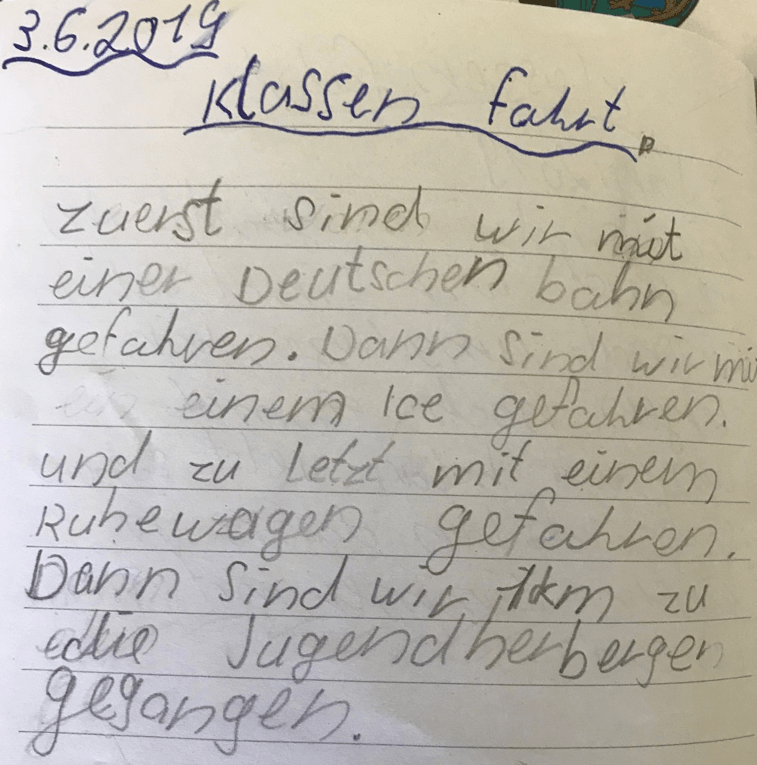 3.6.2019
Klassen fahrt.
zuerst sind wir mit
einer Deutschen bahn
gefahren. Dann sind wir mi
einem Ice gefahren.
und zu letzt mit einem
Ruhewagen gefahren.
Dann sind wir 1km zu
die Jugendherbergen
gegangen.